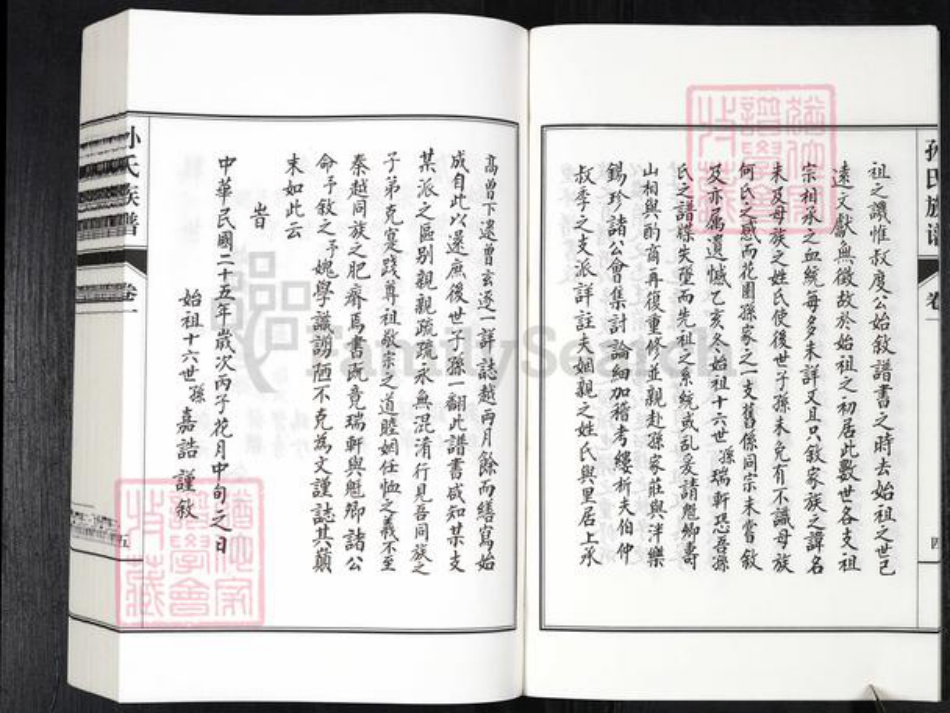 孫氏族譜
卷一
四
祖之讖惟叔度公始敘譜書之時去始祖之世已
遠文獻無徵故於始祖之初居此數世各支祖
宗相承之血統每多未詳又且只敘家族之諱名
未及母族之姓氏使後世子孫未免有不識母族
何氏之感而花園孫家之一支舊係同宗未嘗敘
及亦屬遺憾乙亥冬始祖十六世孫瑞軒恐吾孫
氏之譜牒失墜而先祖之系統或乱爰請魁卿壽
山相與酌商再復重修並親赴孫家莊與泮樂
錫珍諸公會集討論細加稽考縷析夫伯仲
叔季之支派詳註夫姻親之姓氏與里居上承
高曾下逮曾玄逐一詳誌越兩月餘而繕寫始
成自此以還庶後世子孫一翻此譜書咸知某支
某派之區别親親疏疏永無混淆行見吾同族之
子弟克寔踐尊祖敬宗之道睦姻任恤之義不至
秦越同族之肥瘠焉書既竟瑞軒與魁卿諸公
命予敘之予媿學識譾陋不克為文謹誌其顛
末如此云
旹
中華民國二十五年歲次丙子花月中旬之日
始祖十六世孫嘉誥謹敘
孙氏族譜
卷一
五
FamilySearch